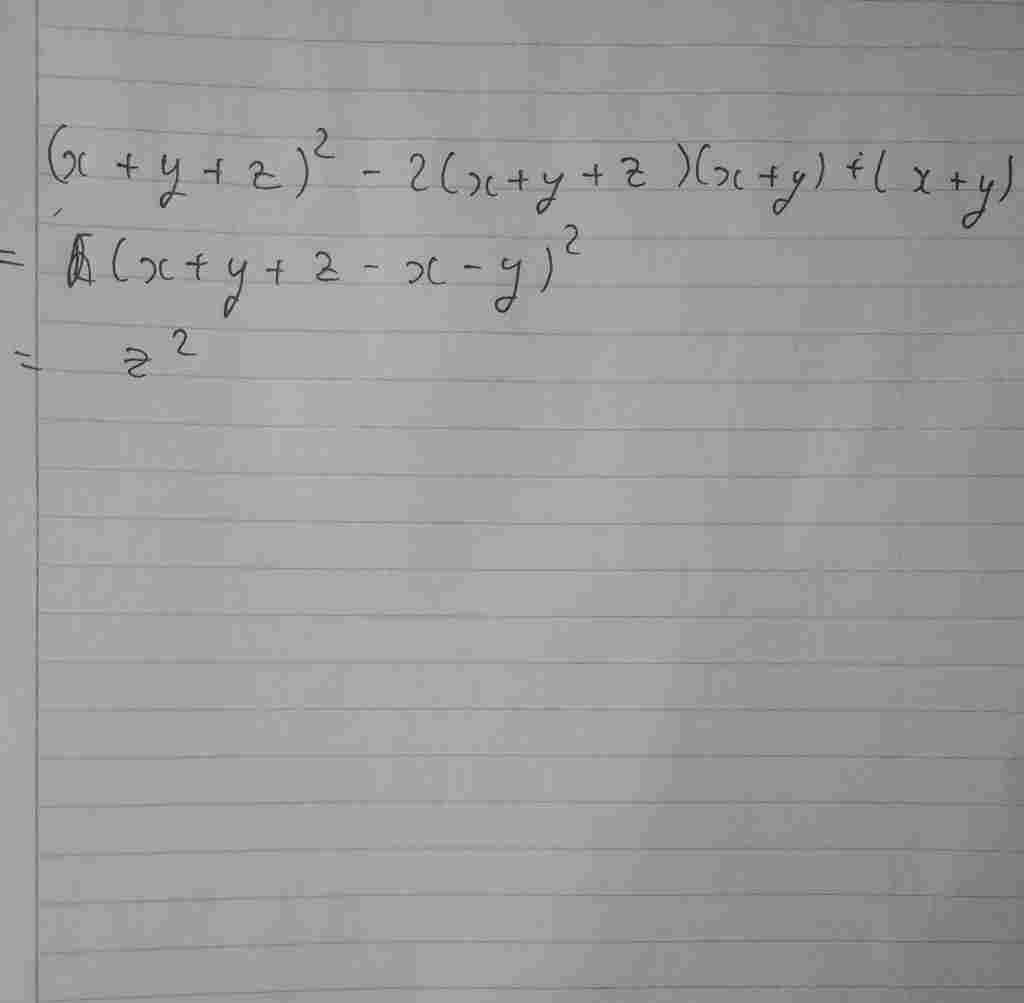 (x + y + z)² - 2(x + y + z)(x + y) + (x + y)
= (x + y + z - x - y)²
= z²